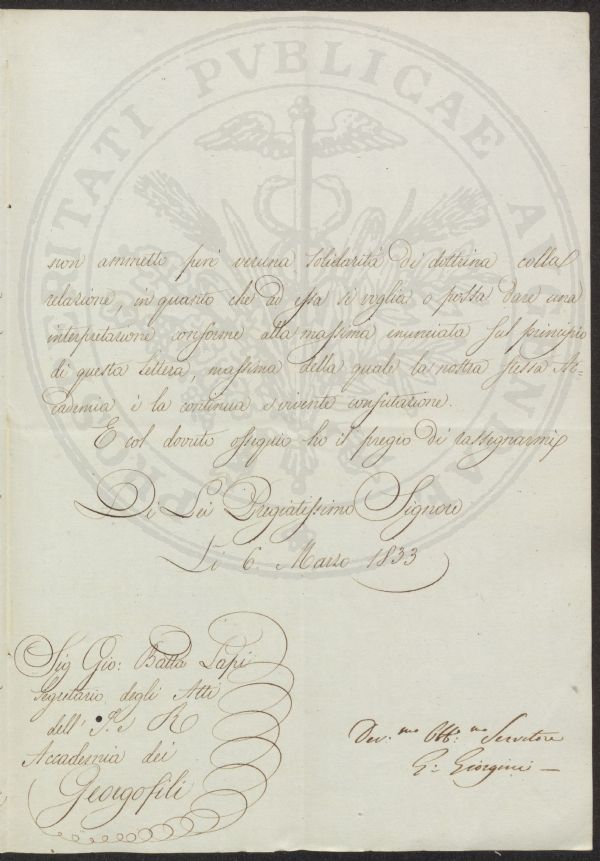 non ammetto però veruna solidarità di dottrina colla
relazione, in quanto che ad essa si voglia o possa dare una
interpretazione conforme alla massima enunciata sul principio
di questa lettera, massima della quale la nostra stessa Ac=
cademia è la continua e vivente confutazione.
E col dovuto ossequio ho il pregio di rassegnarmi
Di Lei Pregiatissimo Signore
Li 6. Marzo 1833
Sig Gio: Batta Lapi
Segretario degli Atti
dell' I. e R
Accademia dei
Georgofili
Dev.mo Obb.mo Servitore
G: Giorgini
PROSPERITATI PVBLICAE AVGENDAE